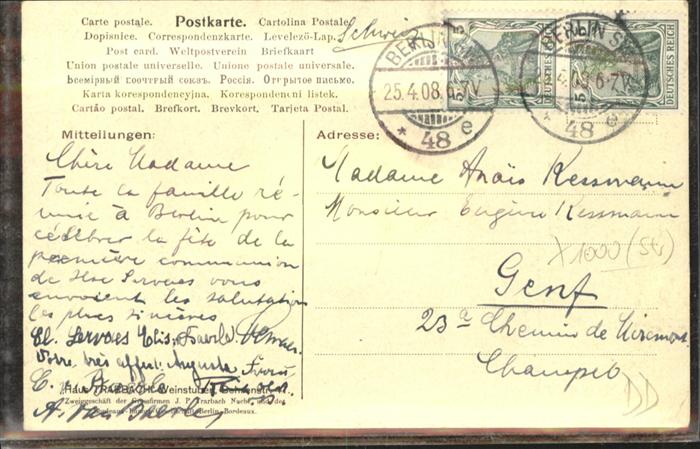 Carte postale. Postkarte. Cartolina Postale.
Dopisnice. Correspondenzkarte. Levelezö-Lap.
Post card. Weltpostverein Briefkaart
Union postale universelle. Unione postale universale.
Karta korespondencyjna. Korespondenčni listek.
Cartão postal. Brefkort. Brevkort. Tarjeta Postal.
Schweiz
BERLIN S.W.
25.4.08.6-7V.
* 48 e
BERLIN S.W.
4.08.6-7V.
* 48 e
5 5
DEUTSCHES REICH
DEUTSCHES REICH
Mitteilungen:
Chère Madame
Toute la famille ré-
unie à Berlin pour
célébrer la fête de la
première communion
de Ilse Servaes vous
envoient les salutations
les plus sincères
El. Servaes Elis.
Votre très affect. Auguste
"Haus TRARBACH" Weinstuben, Behrenstr.
Zweiggeschäft der Grossfirmen J. P. Trarbach Nachf. und der
Berlin-Bordeaux.
A. van
Adresse:
Madame Anaïs Kessmann
Monsieur Eugène Kessmann
X1000 (St)
Genf
23a Chemin de Miremont
Champel
DD